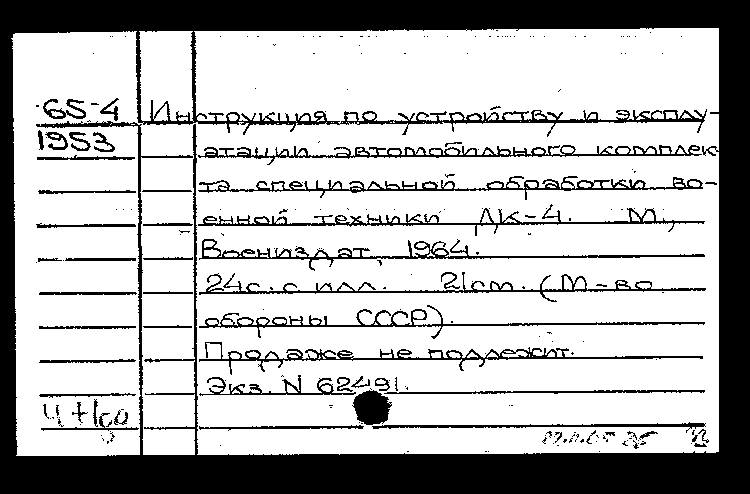 65-4 Инструкция по устройству и эксплу-
1953 атации автомобильного комплек-
та специальной обработки во-
енной техники ДК-4. М.,
Воениздат, 1964.
24с. с илл. 21см. (М-во
обороны СССР).
Продаже не подлежит.
Экз. N 62491.